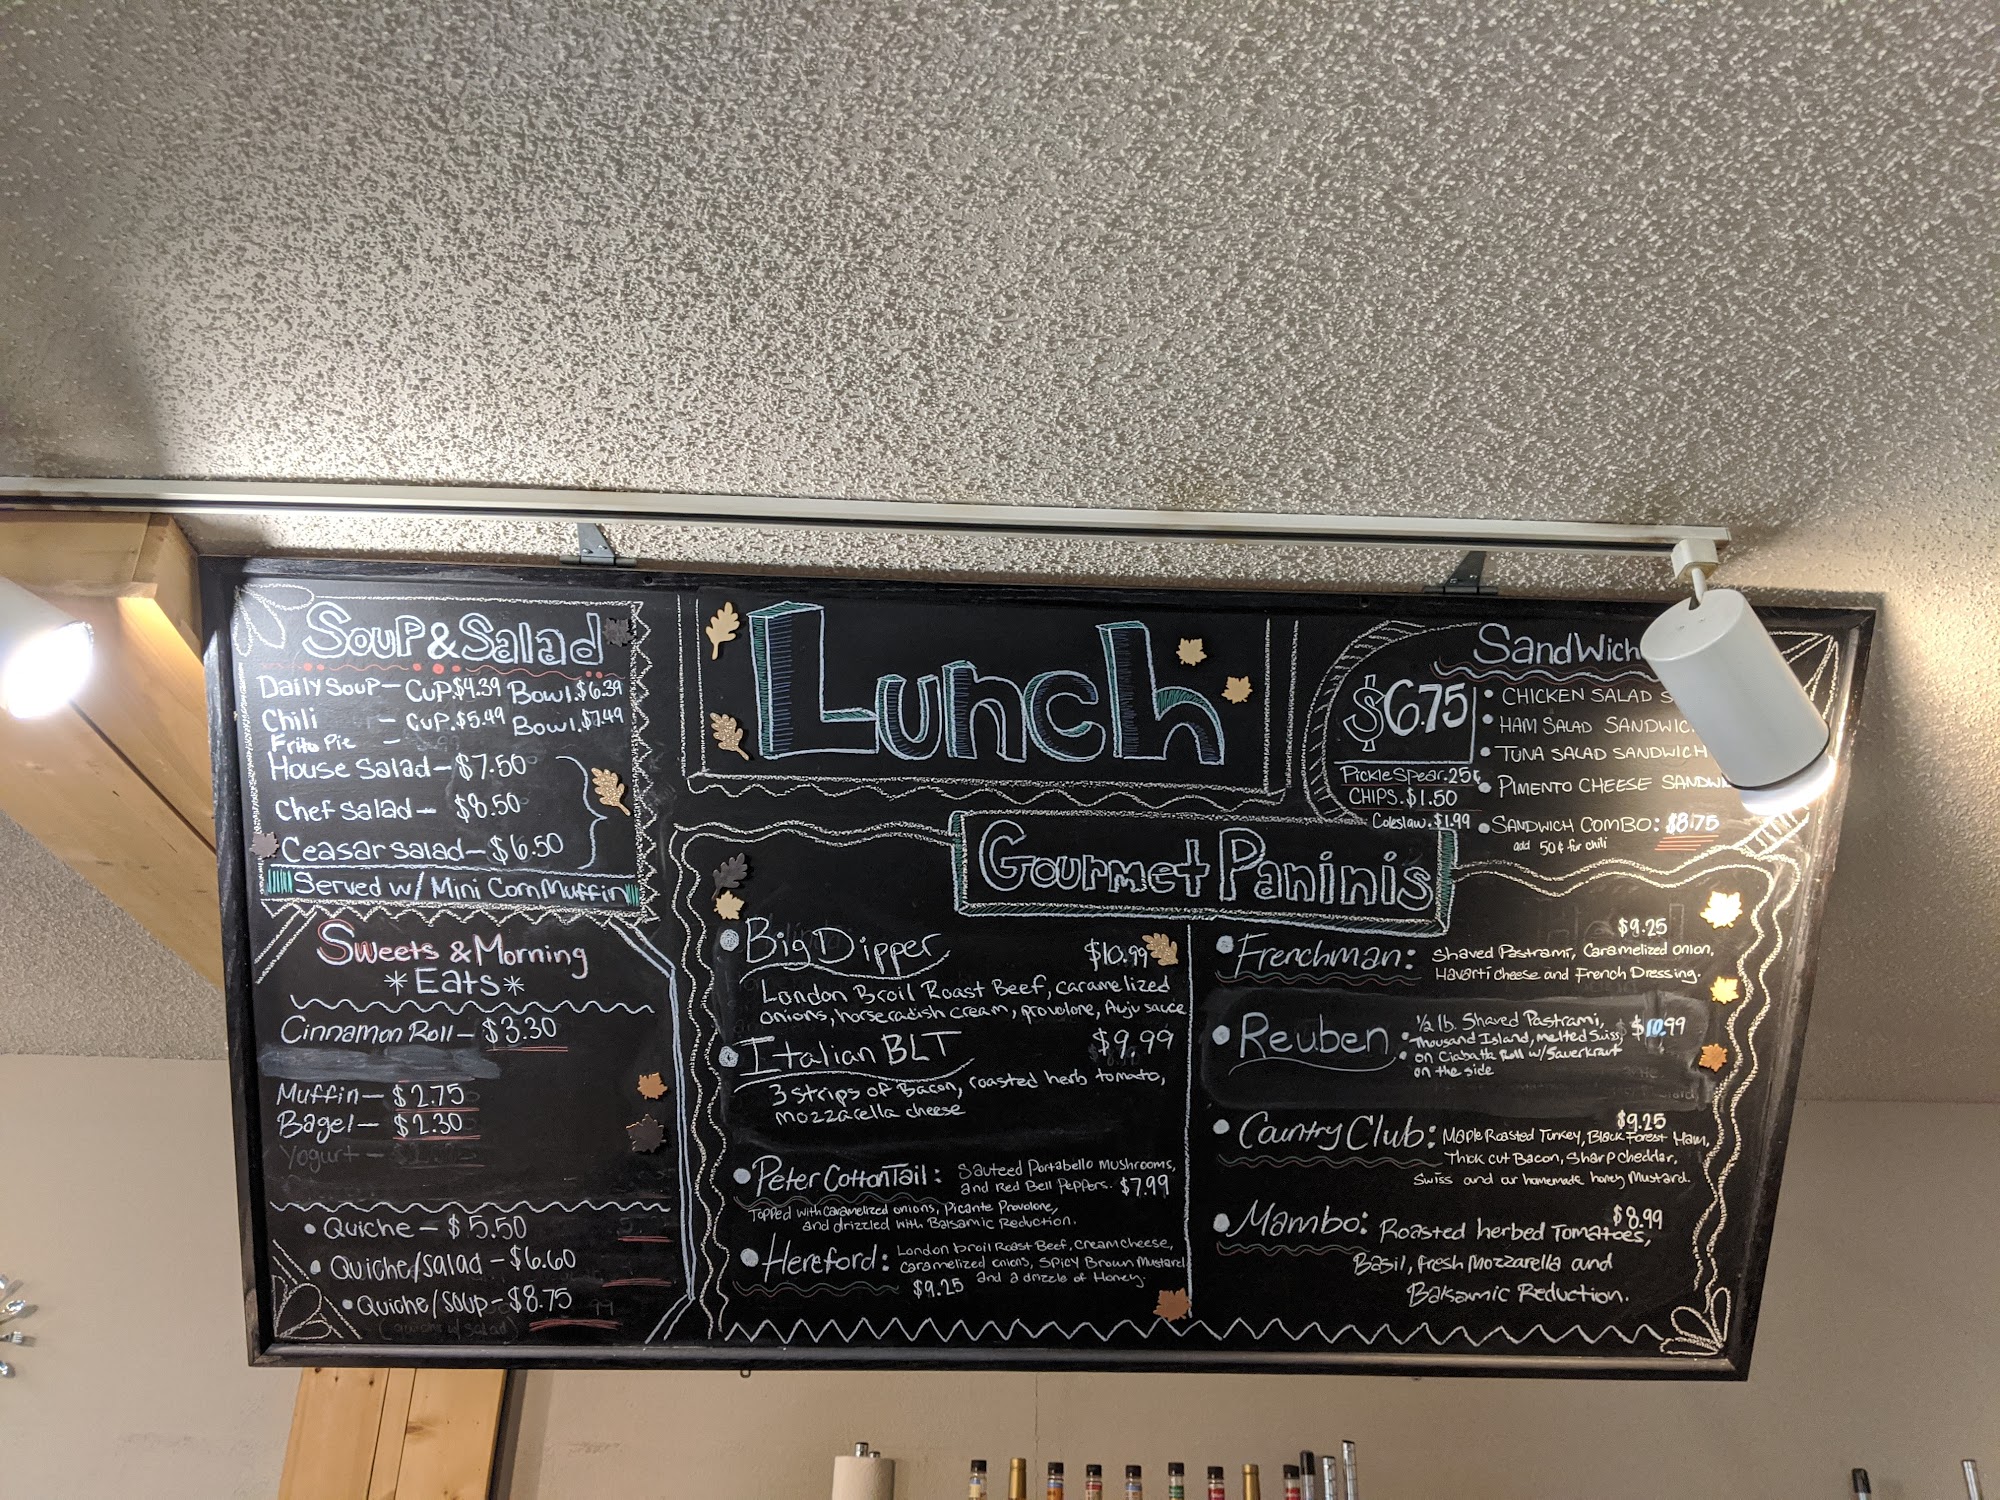 Soup & Salad
Daily Soup - Cup.$4.39 Bowl.$6.39
Chili - Cup.$5.49 Bowl.$7.49
Frito Pie -
House Salad - $7.50
Chef Salad - $8.50
Ceasar Salad - $6.50
Served w/ Mini Corn Muffin
Sweets & Morning
*Eats*
Cinnamon Roll - $3.30
Muffin - $2.75
Bagel - $2.30
Yogurt -
• Quiche - $5.50
• Quiche/Salad - $6.60
• Quiche/Soup - $8.75
Lunch
Sandwich
$6.75
• CHICKEN SALAD
• HAM SALAD
• TUNA SALAD SANDWICH
• PIMENTO CHEESE
Pickle Spear.25¢
CHIPS.$1.50
Coleslaw.$1.99
• SANDWICH COMBO: $8.75
add 50¢ for chili
Gourmet Paninis
• Big Dipper $10.99
London Broil Roast Beef, caramelized
onions, horseradish cream, provolone, Auju sauce
• Italian BLT $9.99
3 strips of Bacon, roasted herb tomato,
mozzarella cheese
• Peter CottonTail: Sauteed Portabello Mushrooms,
and Red Bell Peppers. $7.99
Topped with caramelized onions, Picante Provolone,
and drizzled with Balsamic Reduction.
• Hereford: London broil Roast Beef, Creamcheese,
caramelized onions, Spicy Brown Mustard
and a drizzle of Honey.
$9.25
$9.25
• Frenchman: Shaved Pastrami, Caramelized onion,
Havarti cheese and French Dressing.
• Reuben 1/2 lb. Shaved Pastrami, $10.99
Thousand Island, melted Suiss,
on Ciabatta Roll w/ Sauerkraut
on the side
$9.25
• Country Club: Maple Roasted Turkey, Black Forest Ham,
Thick cut Bacon, Sharp Cheddar,
Swiss and our homemade honey Mustard.
$8.99
• Mambo: Roasted herbed Tomatoes,
Basil, fresh Mozzarella and
Balsamic Reduction.